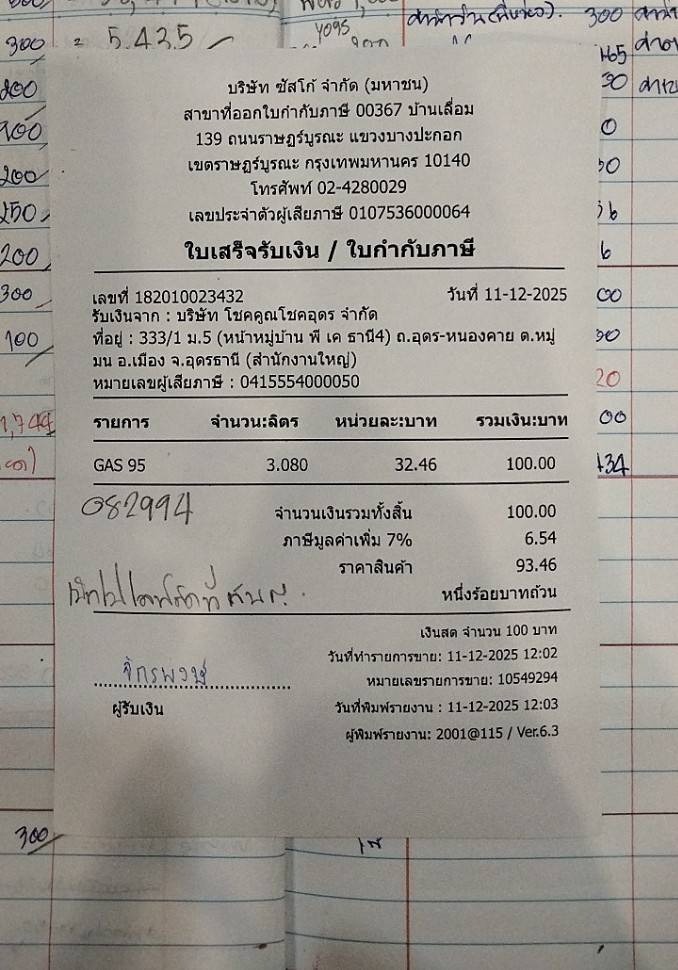 300 = 5,435
บริษัท ซัสโก้ จำกัด (มหาชน)
สาขาที่ออกใบกำกับภาษี 00367 บ้านเลื่อม
139 ถนนราษฎร์บูรณะ แขวงบางปะกอก
เขตราษฎร์บูรณะ กรุงเทพมหานคร 10140
โทรศัพท์ 02-4280029
เลขประจำตัวผู้เสียภาษี 0107536000064
ใบเสร็จรับเงิน / ใบกำกับภาษี
เลขที่ 182010023432 วันที่ 11-12-2025
รับเงินจาก : บริษัท โชคคูณโชคอุดร จำกัด
ที่อยู่ : 333/1 ม.5 (หน้าหมู่บ้าน พี เค ธานี4) ถ.อุดร-หนองคาย ต.หมู่
มน อ.เมือง จ.อุดรธานี (สำนักงานใหญ่)
หมายเลขผู้เสียภาษี : 0415554000050
รายการ จำนวน:ลิตร หน่วยละ:บาท รวมเงิน:บาท
GAS 95 3.080 32.46 100.00
082994
จำนวนเงินรวมทั้งสิ้น 100.00
ภาษีมูลค่าเพิ่ม 7% 6.54
ราคาสินค้า 93.46
หนึ่งร้อยบาทถ้วน
เงินสด จำนวน 100 บาท
วันที่ทำรายการขาย: 11-12-2025 12:02
จักรพงษ์
หมายเลขรายการขาย: 10549294
ผู้รับเงิน
วันที่พิมพ์รายงาน : 11-12-2025 12:03
ผู้พิมพ์รายงาน: 2001@115 / Ver.6.3
200
200
200
250
200
300
100
1,744
300
300